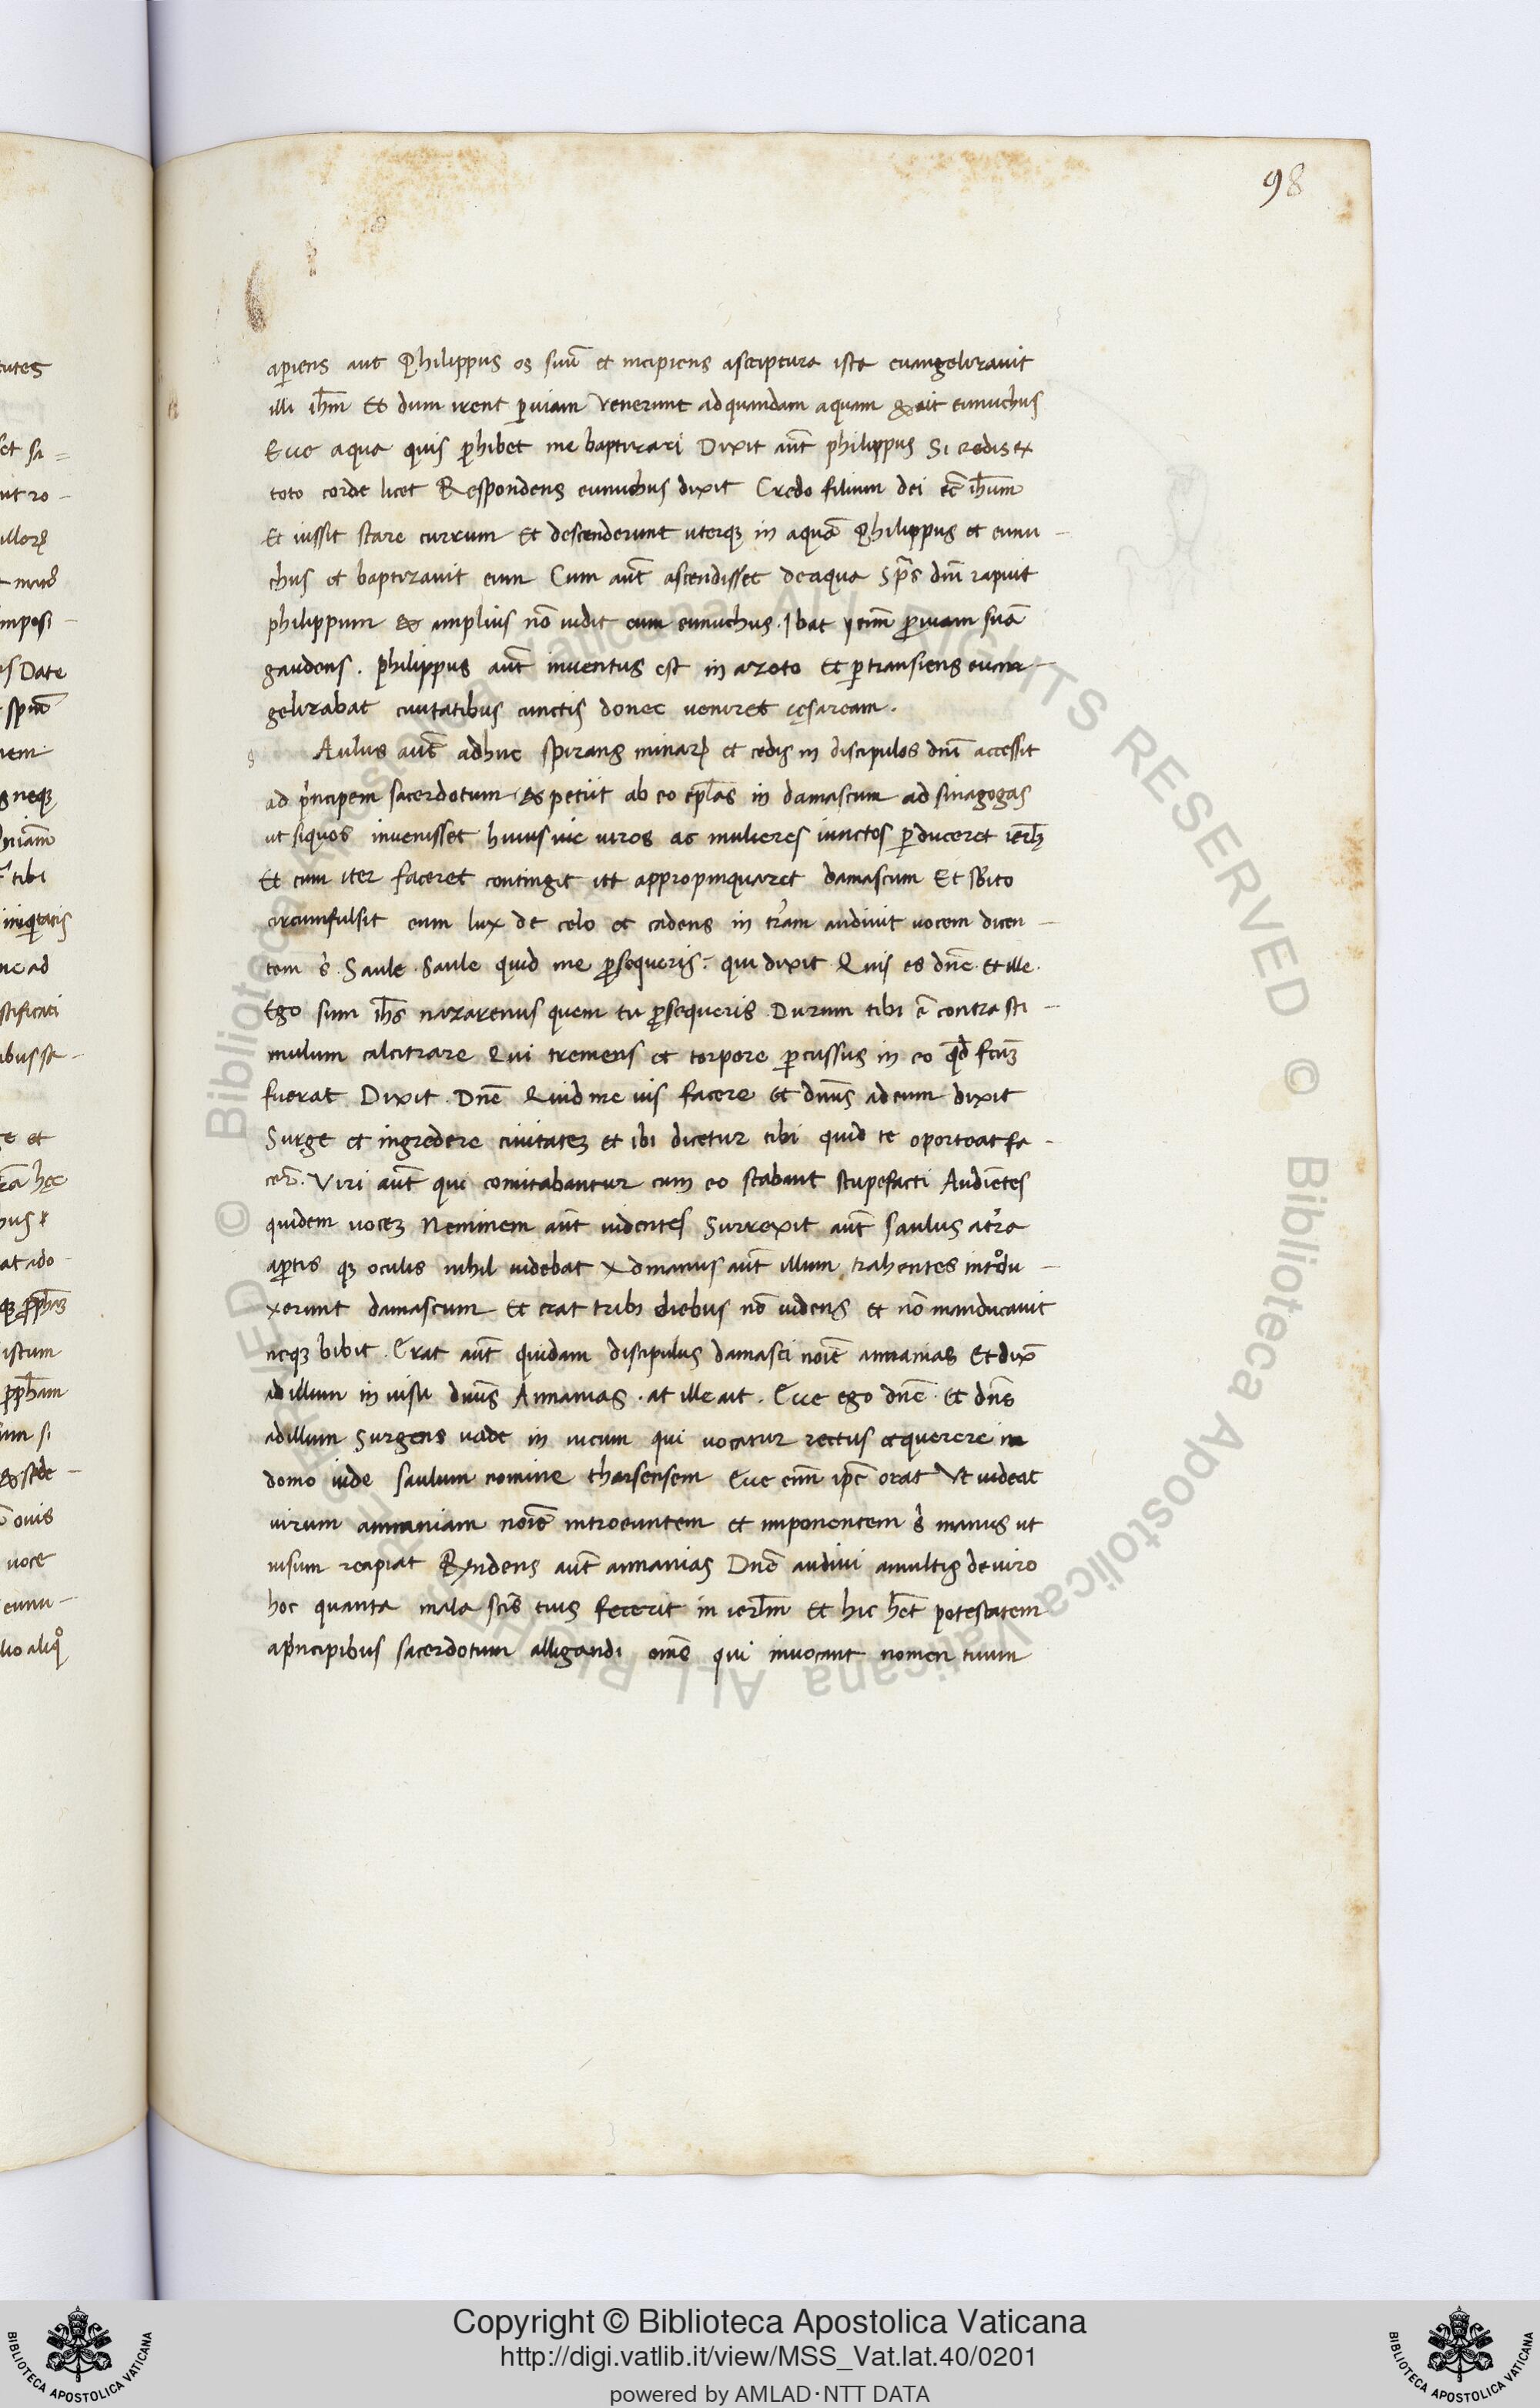 98
aꝑiens aut Philippus os suũ et incipiens ascriptura ista euangelizauit
illi ihm̃ Et dum irent ꝑuiam venerunt adquandam aquam & ait eunuchus
Ecce aqua quis ꝓhibet me baptizari Dixit aut̃ philippus Si credis ex
toto corde licet Respondens eunuchus dixit Credo filium dei eẽ ihũm
Et iussit stare currum Et descenderunt uterqꝫ in aquã Philippus et eunu-
chus et baptizauit eum Cum aut̃ ascendisset deaqua Sp̃s dñi rapuit
philippum & amplius nõ uidit eum eunuchus. Ibat enim̃ ꝑuiam suã
gaudens. Philippus aut̃ inuentus est in azoto Et ꝑtransiens euan-
gelizabat ciuitatibus cunctis donec ueniret cęsaream.
s Aulus aut̃ adhuc spirans minaꝝ et cedis in discipulos dñi accessit
ad pͥncipem sacerdotum & petiit ab eo ep̃las in damascum ad sinagogas
ut siquos inuenisset huius uie uiros ac mulieres iunctos ꝑduceret ierlꝫ
Et cum iter faceret contingit itt appropinquaret damascum Et sƀito
circumfulsit eum lux de celo et cadens in tr̃am audiuit uocem dicen-
tem sͥ. Saule. Saule quid me ꝑsequeris? qui dixit. Quis es dñe. et ille.
Ego sum ihs̃ nazarenus quem tu ꝑsequeris. Durum tibi ẽ contra sti-
mulum calcitrare Qui tremens et torpore ꝑcussus in eo qđ fcũꝫ
fuerat Dixit. Dñe Quid me uis facere Et dñus adeum dixit
Surge et ingredere ciuitateꝫ et ibi dicetur tibi quid te oporteat fa-
cer̃. Viri aut̃ qui comitabantur cum eo stabant stupefacti Audiẽtes
quidem uoceꝫ Neminem aut̃ uidentes Surrexit aut̃ saulus atr̃a
aꝑtis qꝫ oculis nihil uidebat Admanus aut̃ illum trahentes intͦdu-
xerunt damascum Et erat tribꝫ diebus nõ uidens et nõ manducauit
neqꝫ bibit. Erat aut̃ quidam discipulus damasci noiẽ annanias Et dix̃
adillum in uisu dñus Annanias. at ille ait. Ecce ego dñe. Et dñs
adillum Surgens uade in uicum qui uocatur rectus et querere in
domo iude saulum nomine tharsensem Ecce enĩm ip̃e orat Vt uideat
uirum annaniam noiẽ introeuntem et imponentem sͥ manus ut
uisum recipiat Rñdens aut̃ annanias Dñe audiui amultis deuiro
hoc quanta mala scĩs tuis fecerit in ierlm̃ Et hic hẽt potestatem
apͥncipibus sacerdotum alligandi om̃s qui inuocant nomen tuum
Copyright © Biblioteca Apostolica Vaticana
http://digi.vatlib.it/view/MSS_Vat.lat.40/0201
powered by AMLAD·NTT DATA